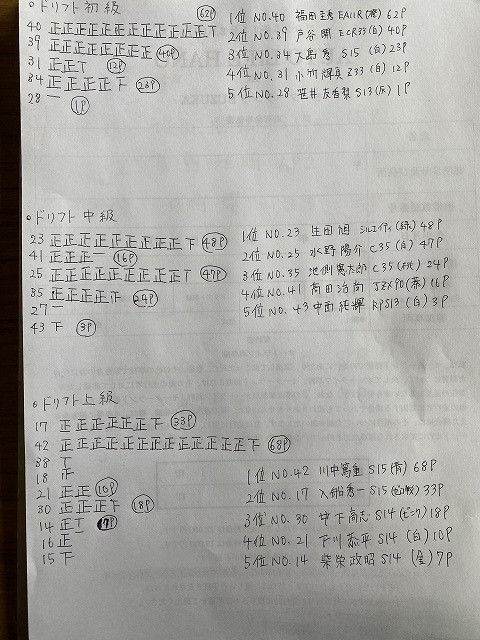 ○ドリフト初級
40 正正正正正正正正正正正正T 62P
39 正正正正正正正正 40P
31 正正T 12P
34 正正正正下 23P
28 一 1P
1位 NO.40 福田圭秀 EA11R(橙) 62P
2位 NO.39 戸谷 開 ECR33(白) 40P
3位 NO.34 大島 秀 S15 (白) 23P
4位 NO.31 小竹輝良 Z33 (白) 12P
5位 NO.28 笹井友香梨 S13(灰) 1P
○ドリフト中級
23 正正正正正正正正正下 48P
41 正正正一 16P
25 正正正正正正正正正T 47P
35 正正正正正 24P
27 一
43 下 3P
1位 NO.23 生田 旭 シルエイティ(緑) 48P
2位 NO.25 水野陽介 C35 (白) 47P
3位 NO.35 池側 太郎 C35 (桃) 24P
4位 NO.41 高田 JZX90(茶) 16P
5位 NO.43 中西純輝 RPS13 (白) 3P
○ドリフト上級
17 正正正正正正下 33P
42 正正正正正正正正正正正正正下 68P
38 T
18 正
21 正正 10P
30 正正正下 18P
14 正T 7P
16 正
15 下
1位 NO.42 川中篤重 S15(青) 68P
2位 NO.17 入船秀一 S15 33P
3位 NO.30 中下高志 S14(ピンク) 18P
4位 NO.21 下川恭平 S14 (白) 10P
5位 NO.14 柴栄政昭 S14 (金) 7P